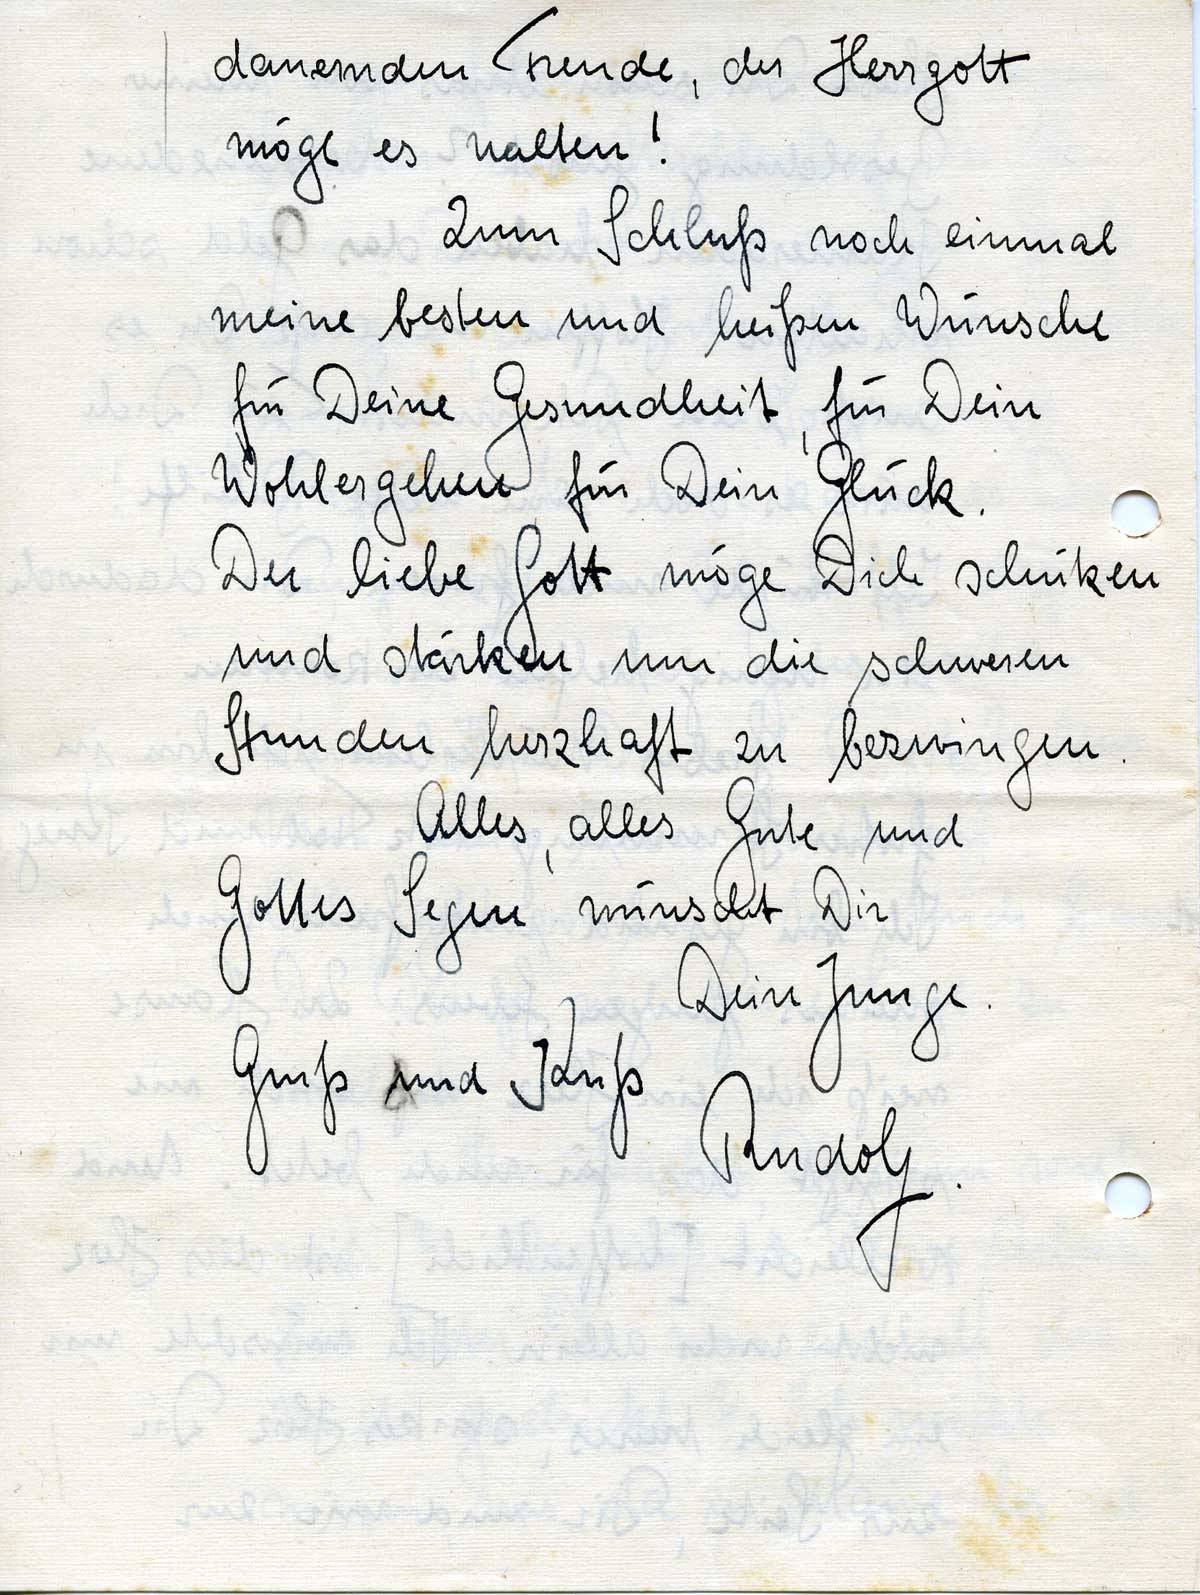 dauernden Freude, der Herrgott
möge es walten!
Zum Schluß noch einmal
meine besten und heißen Wünsche
für Deine Gesundheit, für Dein
Wohlergehen, für Dein Glück.
Der liebe Gott möge Dich schützen
und stärken um die schweren
Stunden herzhaft zu bezwingen.
Alles, alles Gute und
Gottes Segen wünscht Dir
Dein Junge.
Gruß und Kuß
Rudolf.